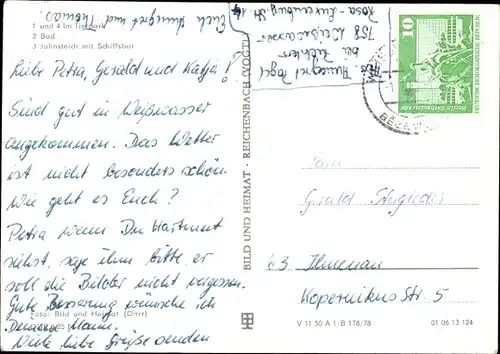 1 und 4 Im Tierpark
2 Bad
3 Jahnsteich mit Schiffsbar
Liebe Petra, Gerald und Katja!
Sind gut in Weißwasser
angekommen. Das Wetter
ist nicht besonders schön.
Wie geht es Euch?
Petra wenn Du Hartmut
siehst, sage ihm bitte, er
soll die Bilder nicht vergessen.
Gute Besserung wünsche ich
Deinem Mann.
Viele liebe Grüße senden
Euch Annegret und Thomas
Foto: Bild und Heimat (Darr)
Abs. Annegret Vogel
bei Richter
758 Weißwasser
Rosa-Luxemburg-Str. 14
BILD UND HEIMAT · REICHENBACH (VOGTL)
10
DEUTSCHE DEMOKRATISCHE REPUBLIK
Gerald
63 Ilmenau
Kopernikus Str. 5
V 11 50 A 1/B 176/78
01 06 13 124